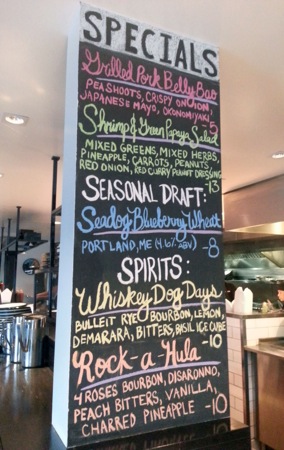 SPECIALS
Grilled Pork Belly Bao
PEASHOOTS, CRISPY ONION,
JAPANESE MAYO, OKONOMIYAKI
-5
Shrimp & Green Papaya Salad
MIXED GREENS, MIXED HERBS,
PINEAPPLE, CARROTS, PEANUTS,
RED ONION, RED CURRY PEANUT DRESSING
-13
SEASONAL DRAFT:
Seadog Blueberry Wheat
PORTLAND, ME (4.6% ABV) -8
SPIRITS:
Whiskey Dog Days
BULLEIT RYE BOURBON, LEMON,
DEMARARA, BITTERS, BASIL ICE CUBE
-10
Rock-a-Hula
4 ROSES BOURBON, DISARONNO,
PEACH BITTERS, VANILLA,
CHARRED PINEAPPLE -10